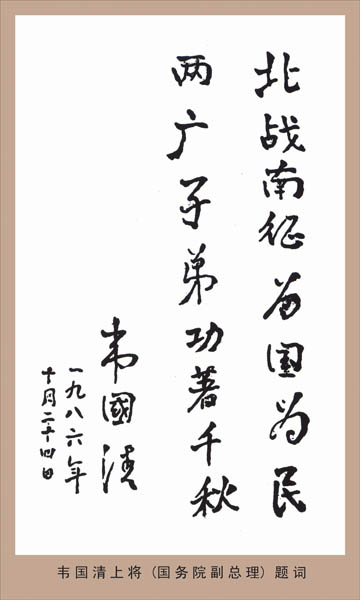 北战南征为国为民
两广子弟功著千秋
韦國清
一九八六年
十月二十四日
韦国清上将（国务院副总理）题词